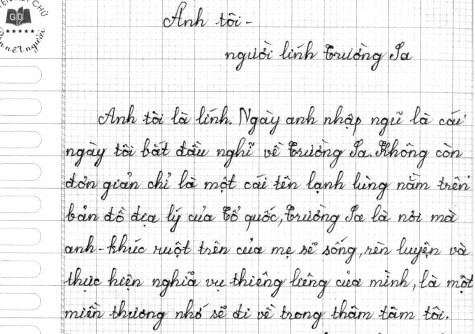 GD
Anh tôi -
người lính Trường Sa
Anh tôi là lính. Ngày anh nhập ngũ là cái
ngày tôi bắt đầu nghĩ về Trường Sa. Không còn
đơn giản chỉ là một cái tên lạnh lùng nằm trên
bản đồ địa lý của Tổ quốc, Trường Sa là nơi mà
anh - khúc ruột trên của mẹ sẽ sống, rèn luyện và
thực hiện nghĩa vụ thiêng liêng của mình, là một
miền thương nhớ sẽ đi về trong thâm tâm tôi.